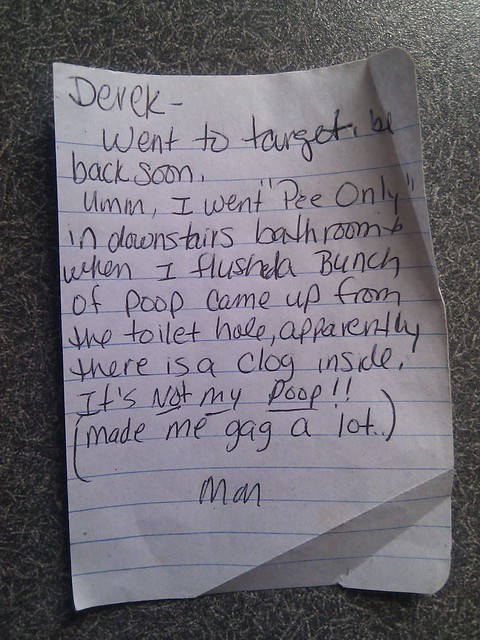 Derek-
Went to target, be
back soon.
Umm, I went "Pee Only"
in downstairs bathroom &
when I flushda Bunch
of poop came up from
the toilet hole, apparently
there is a clog inside.
It's Not my Poop!!
(made me gag a lot..)
Mom